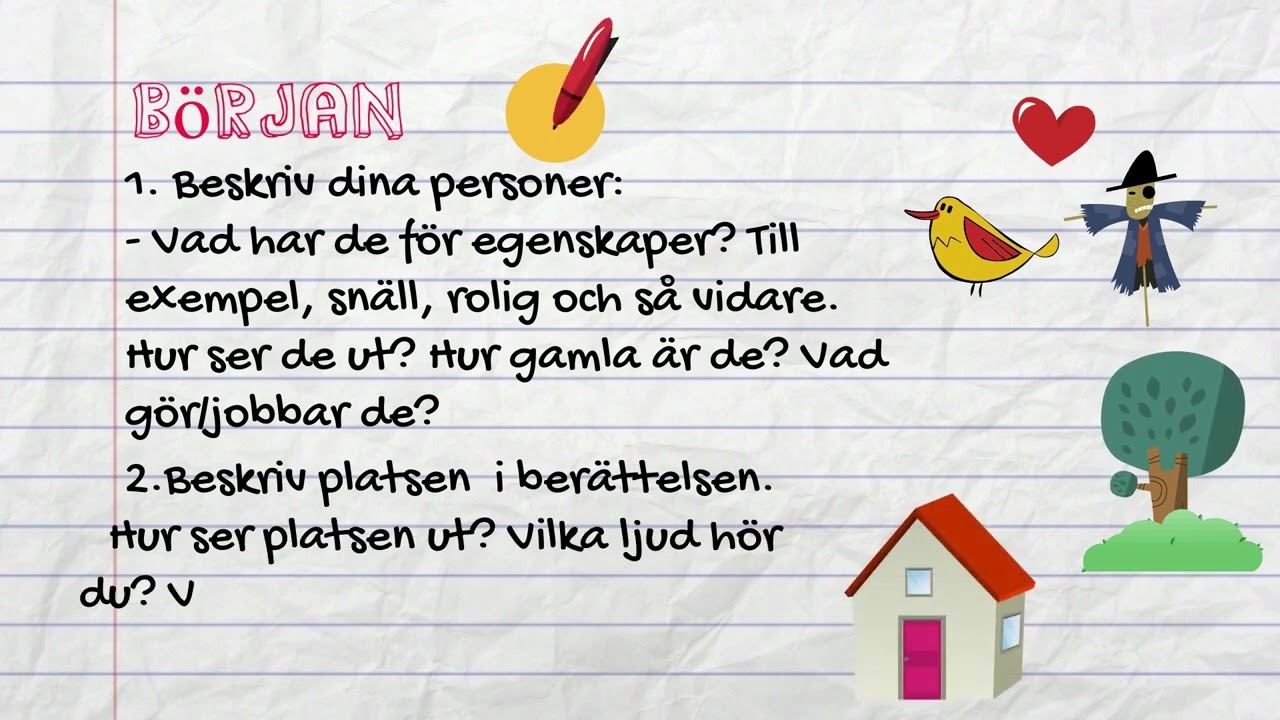 BÖRJAN
1. Beskriv dina personer:
- Vad har de för egenskaper? Till
exempel, snäll, rolig och så vidare.
Hur ser de ut? Hur gamla är de? Vad
gör/jobbar de?
2.Beskriv platsen i berättelsen.
Hur ser platsen ut? Vilka ljud hör
du? V